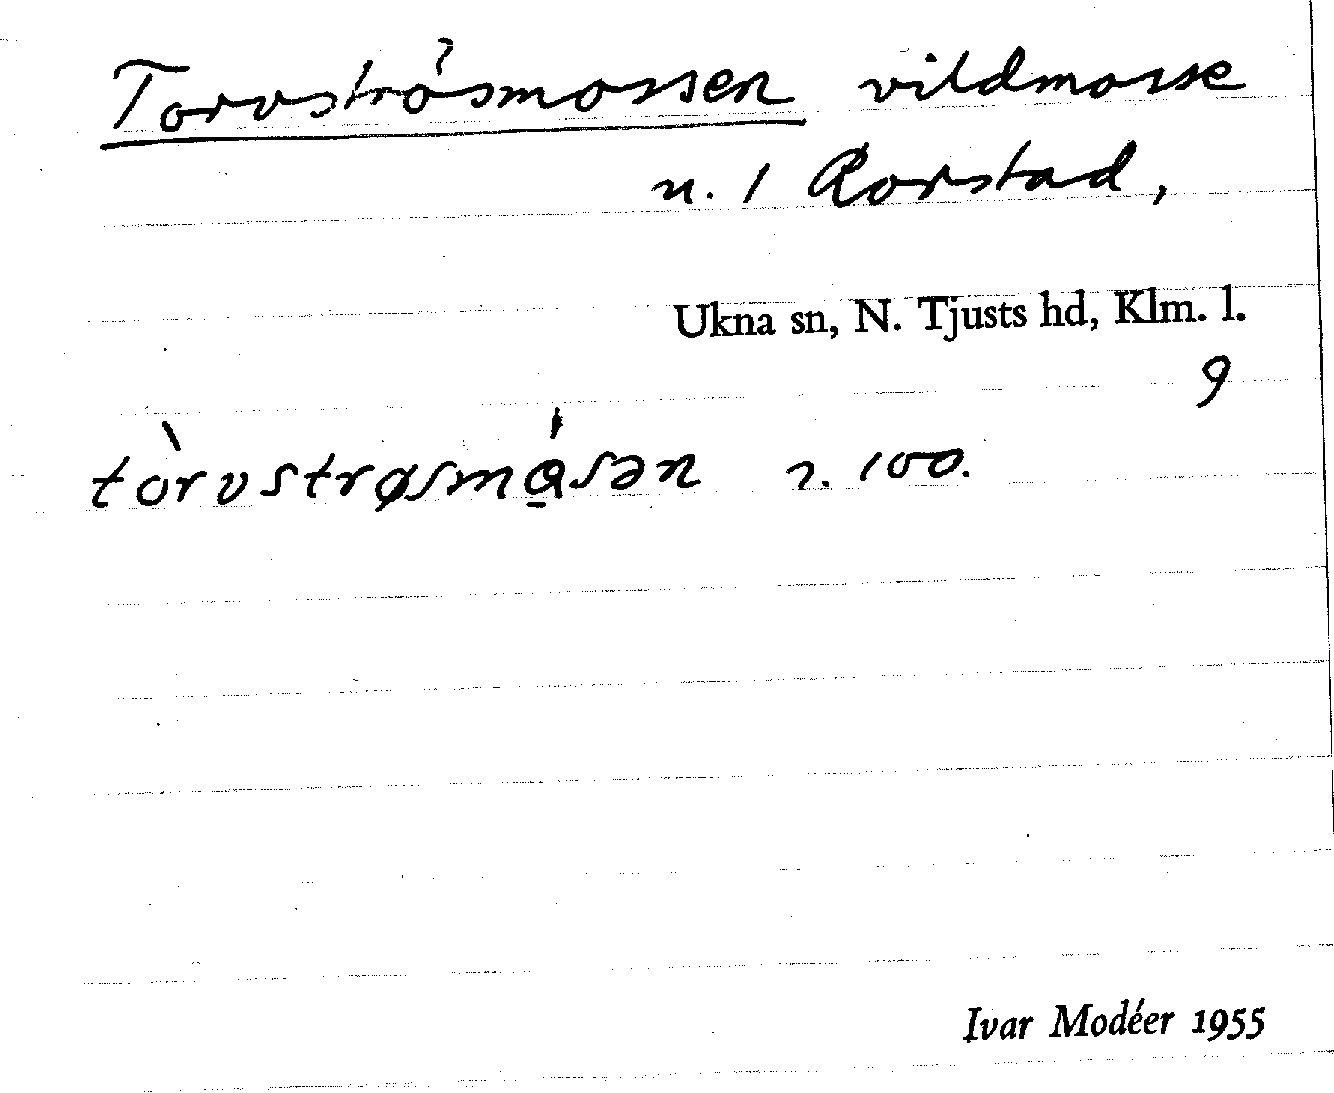 Torvströsmossen vildmosse
n. 1 Rorstad,
Ukna sn, N. Tjusts hd, Klm. l.
9
tòrvstrøsmå̀sən n. 100.
Ivar Modéer 1955